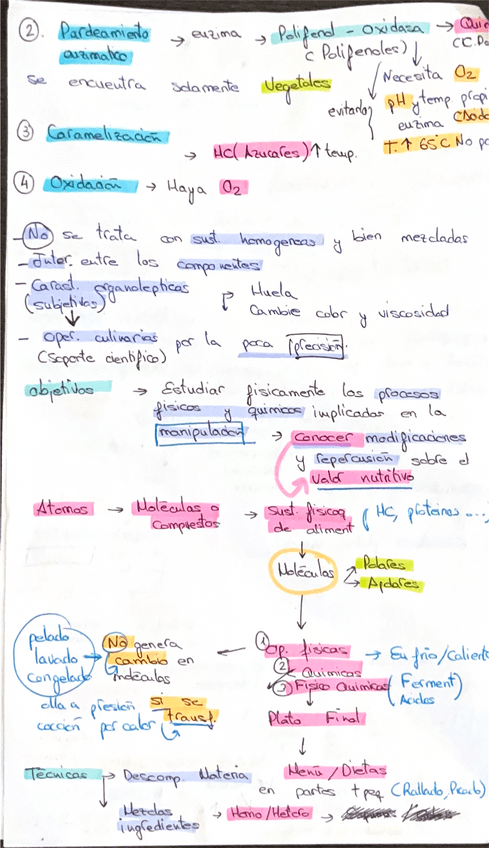 2. Pardeamiento → enzima → Polifenol-Oxidasa →
enzimático (Polifenoles)
se encuentra solamente Vegetales Necesita O2
evitarlo pH y temp.
enzima
T.ª ↑ 65°C No
3 Caramelización → HC (Azucares) ↑ temp.
4 Oxidación → Haya O2
- No se trata con sust. homogeneas y bien mezcladas
- Inter. entre los componentes
- Caract. organolepticas → Huela
(subjetivas) Cambie color y viscosidad
- Oper. culinarias por la poca precisión.
(Soporte científico)
objetivos → Estudiar físicamente los procesos
físicos y quimicos implicados en la
manipulación → conocer modificaciones
y repercusión sobre el
valor nutritivo
Atomos → Moléculas o → Sust. físicas { HC, proteinas ...
Compuestos de aliment
Moléculas Polares
Apolares
pelado No genera ← 1 Op. físicas → En frío/Caliente
lavado → cambio en 2 Quimicas
congelado moléculas 3 Fisico Quimicas (Ferment
olla a presión si se Acidos
cocción por calor transf. Plato Final
Menú/Dietas
Técnicas → Descomp. Materia en partes + peq (Rallado, Picarlo)
Mezclas → Homo/Hetero →
ingredientes